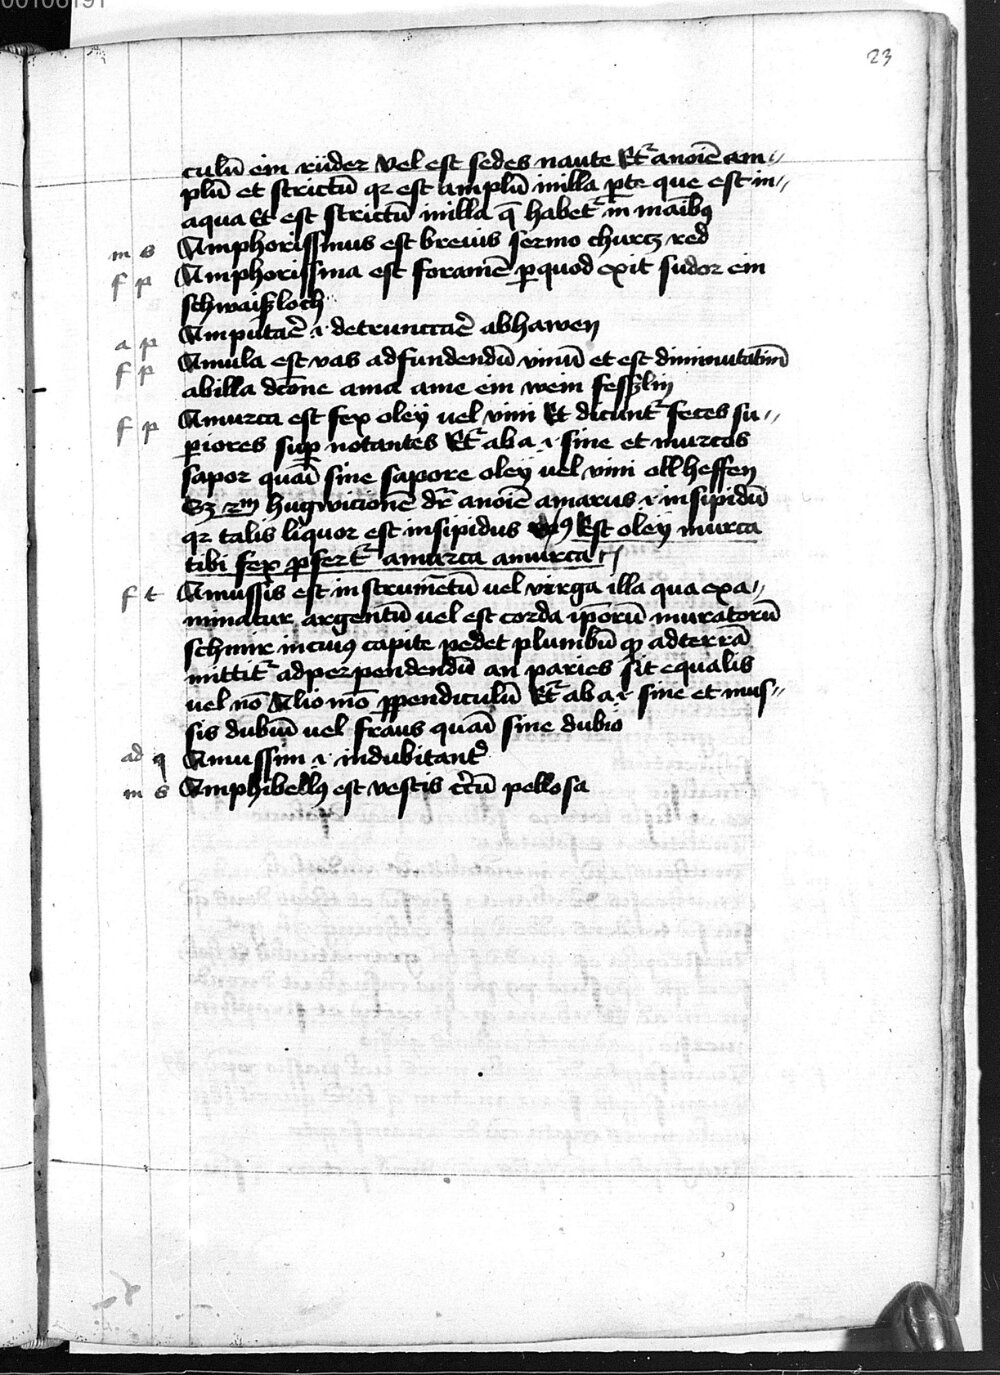 00106191
23
culū ein rüder vel est sedes naute Et͛ anoiē am〃
plū et strictū qꝛ est amplū inilla pte que est in〃
aqua Et est strictū inilla q̄ habet͛ in māibꝰ
m s Amphorissimus est breuis sermo churcz red
f p Amphorissima est foramē ꝑquod exit sudor ein
schwaißloch
a p Amputaē ·i· detrunccaē abhawen
f p Amula est vas adfundendū vinū et est diminutatiuū
abilla dcōne ama ame ein wein fesslin
f p Amurca est fex oley uel vini Et dicunt͛ feces su〃
ꝑiores suꝑ notantes Et͛ ab a ·i· sine et murcos
sapor quāi sine sapore oley uel vini oll heffen
Sꝫ 2m hugwicionē dr̄ anoiē amarus ·i· insipidū
qꝛ talis liquor est insipidus vꝰ Est oley murca
tibi fex ꝓfert͛ amarca amurca
f t Amussis est instrumētū uel virga illa qua exa〃
minatur argentū uel est corda ip̄orū muratorū
schnir incuiꝰ capite pēdet plumbū qꝫ adterrā
mittit͛ adperpendendū an paries sit equalis
uel nō Alio mō ꝑpendiculū Et͛ ab a ·i· sine et mus〃
sis dubiū uel fraus quāi sine dubio
ad q Amussim ·i· indubitant͛
m s Amphibellꝰ est vestis c̄cū pellosa